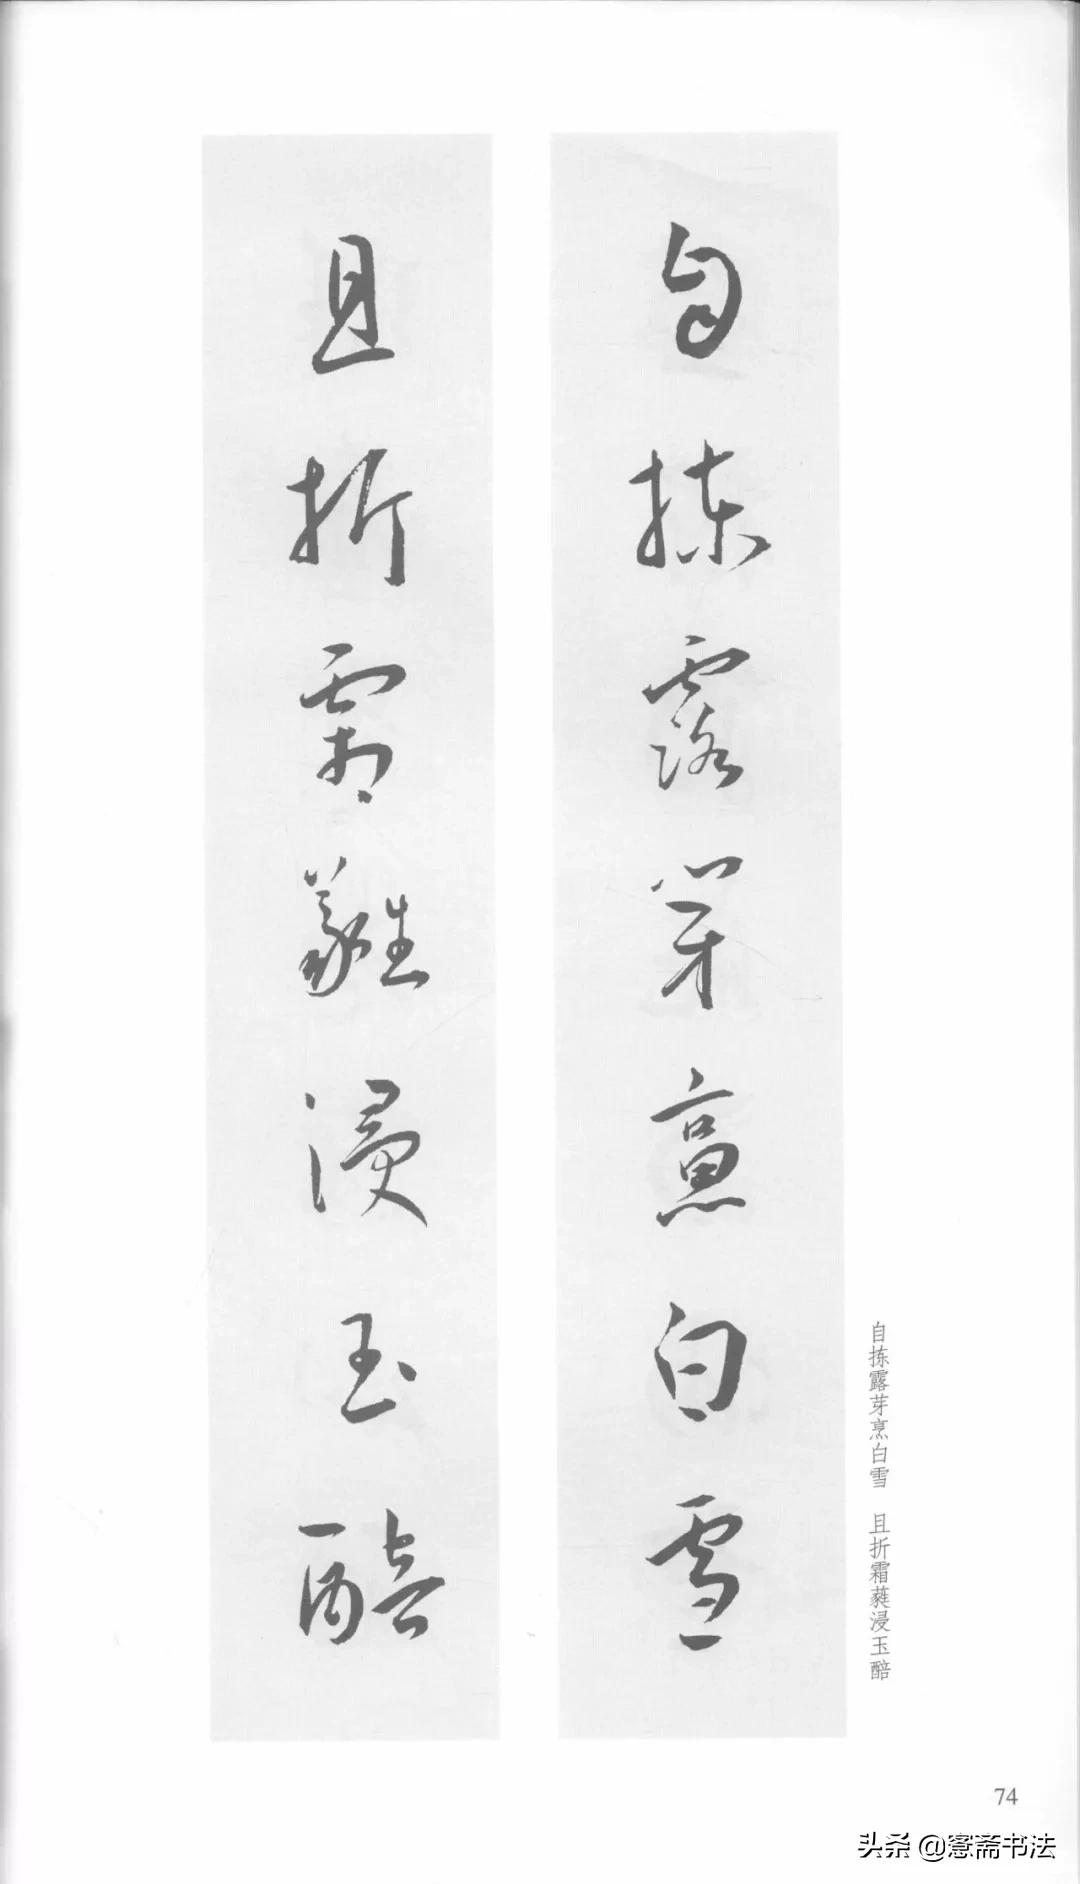 自拣露芽烹白雪
且折霜蕤浸玉醅
自拣露芽烹白雪 且折霜蕤浸玉醅
74
头条 @窓斋书法